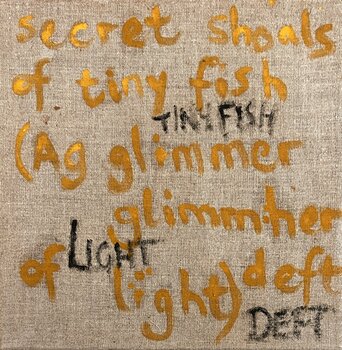 secret shoals
of tiny fish
TINY FISH
(Ag glimmer
glimmher
of LIGHT (ïght) deft
DEFT